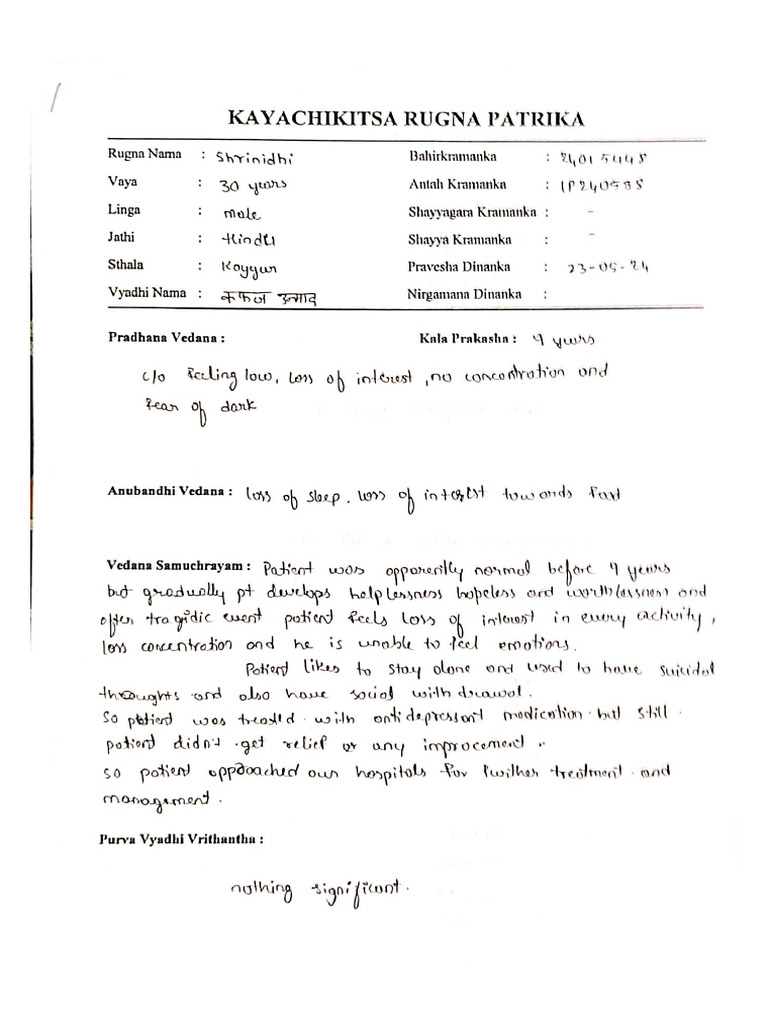 KAYACHIKITSA RUGNA PATRIKA
Rugna Nama : Shrinidhi Bahirkramanka : 24015448
Vaya : 30 years Antah Kramanka : IP240538
Linga : male Shayyagara Kramanka : -
Jathi : Hindu Shayya Kramanka : -
Sthala : Koyyur Pravesha Dinanka : 23-05-24
Vyadhi Nama : कफज उन्माद Nirgamana Dinanka :
Pradhana Vedana : Kala Prakasha : 4 years
c/o feeling low, loss of interest, no concentration and
fear of dark
Anubandhi Vedana : loss of sleep, loss of interest towards
Vedana Samuchrayam : Patient was apparently normal before 4 years
but gradually pt develops helplessness hopeless and worthlessness and
after tragidic event patient feels loss of interest in every activity,
loss concentration and he is unable to feel emotions.
Patient likes to stay alone and used to have suicidal
thoughts and also have social withdrawal.
so patient was treated with antidepressant medication but still
patient didn't get relief or any improvement.
so patient approached our hospitals for further treatment and
management.
Purva Vyadhi Vrithantha :
nothing significant.